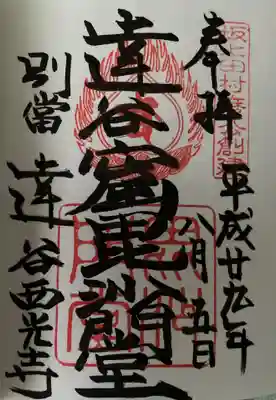 坂上田村麿公創建
奉拝
平成廿九年
八月五日
達谷窟毘沙門堂
別當 達谷西光寺